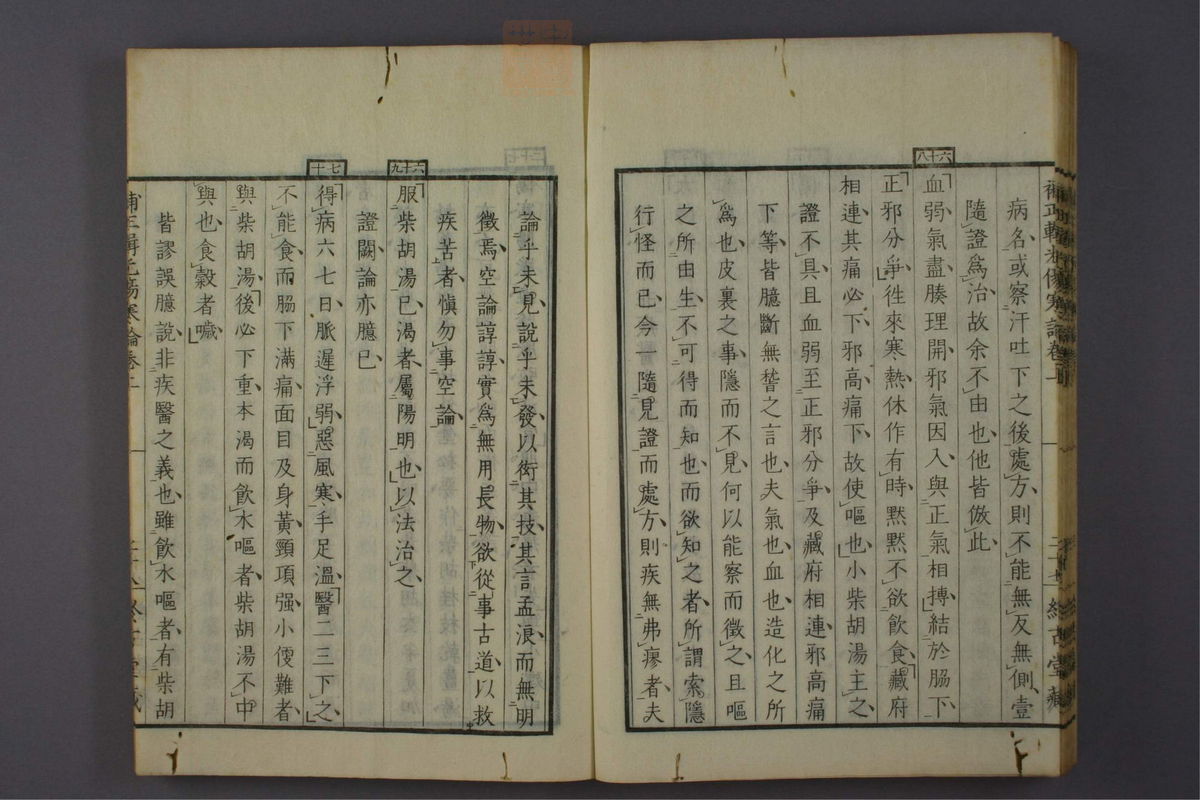 病名、或察汗吐下之後、處方、則不能無反無側、壹
隨證爲治、故余不由也、他皆倣此、
六十八
血弱氣盡、腠理開、邪氣因入、與正氣相搏、結於脇下、
正邪分爭、徃來寒熱、休作有時、默默不欲飲食、藏府
相連、其痛必下、邪高痛下、故使嘔也、小柴胡湯主之、
證不具、且血弱至正邪分爭、及藏府相連、邪高痛
下等、皆臆斷無稽之言也、夫氣也、血也、造化之所
爲也、皮裏之事、隱而不見、何以能察而徵之、且嘔
之所由生、不可得而知也、而欲知之者、所謂索隱
行怪而已、今一隨見證而處方、則疾無弗瘳者、夫
論乎未見、說乎未發、以衒其技、其言孟浪而無明
徵焉、空論諄諄、實爲無用長物、欲從事古道以救
疾苦者、愼勿事空論、
六十九
服柴胡湯已、渴者、屬陽明也、以法治之、
證闕、論亦臆已、
七十
得病六七日、脈遲浮弱、惡風寒、手足溫、醫二三下之、
不能食、而脇下滿痛、面目及身黃、頸項强、小便難者、
與柴胡湯、後必下重、本渴而飲水嘔者、柴胡湯不中
與也、食穀者噦、
皆謬誤臆說、非疾醫之義也、雖飲水嘔者、有柴胡